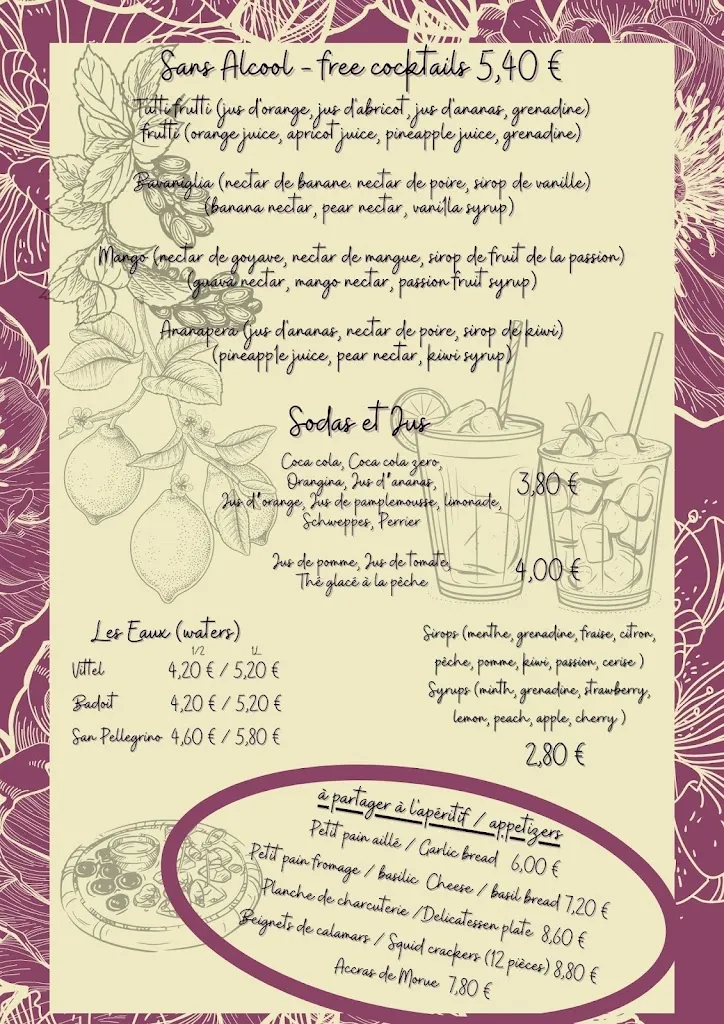 Sans Alcool - free cocktails 5,40 €
Tutti frutti (jus d'orange, jus d'abricot, jus d'ananas, grenadine)
frutti (orange juice, apricot juice, pineapple juice, grenadine)
Bavaniglia (nectar de banane. nectar de poire, sirop de vanille)
(banana nectar, pear nectar, vani1la syrup)
Mango (nectar de goyave, nectar de mangue, sirop de fruit de la passion)
(guava nectar, mango nectar, passion fruit syrup)
Ananapera (jus d'ananas, nectar de poire, sirop de kiwi)
(pineapp1e juice, pear nectar, kiwi syrup)
Sodas et Jus
Coca cola, Coca cola zero,
Orangina, Jus d'ananas,
Jus d'orange, Jus de pamplemousse, limonade,
Schweppes, Perrier
3,80 €
Jus de pomme, Jus de tomate,
Thé glacé à la pêche
4,00 €
Les Eaux (waters)
1/2 1L
Vittel 4,20 € / 5,20 €
Badoit 4,20 € / 5,20 €
San Pellegrino 4,60 € / 5,80 €
Sirops (menthe, grenadine, fraise, citron,
pêche, pomme, kiwi, passion, cerise )
Syrups (minth, grenadine, strawberry,
lemon, peach, apple, cherry )
2,80 €
à partager à l'apéritif / appetizers
Petit pain aillé / Garlic bread 6,00 €
Petit pain fromage / basilic Cheese / basil bread 7,20 €
Planche de charcuterie /Delicatessen plate 8,60 €
Beignets de calamars / Squid crackers (12 pièces) 8,80 €
Accras de Morue 7,80 €